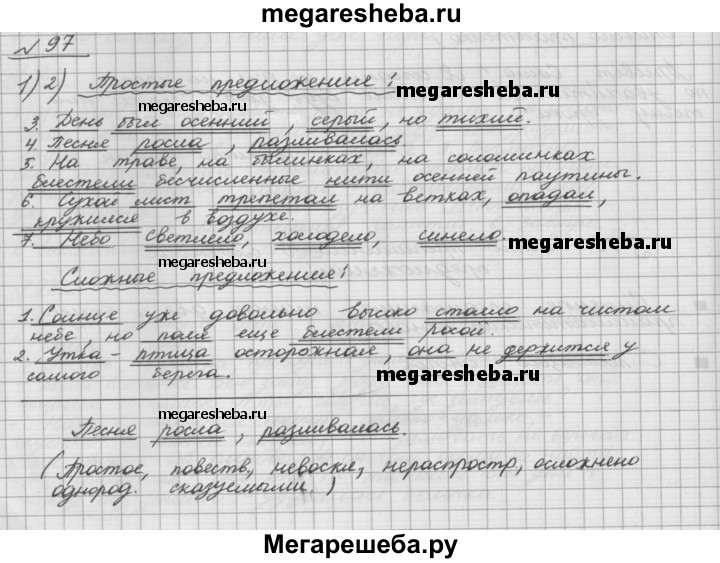 megaresheba.ru
№ 97
1) 2) Простые предложения:
megaresheba.ru
megaresheba.ru
3. День был осенний, серый, но тихий.
4. Песня росла, разливалась
5. На траве, на былинках, на соломинках
блестели бесчисленные нити осенней паутины.
6. Сухой лист трепетал на ветках, опадал,
кружился в воздухе.
7. Небо светлело, холодело, синело.
megaresheba.ru
megaresheba.ru
Сложные предложения:
1. Солнце уже довольно высоко стояло на чистом
небе, но поля еще блестели росой.
2. Утка - птица осторожная, она не держится у
самого берега.
megaresheba.ru
megaresheba.ru
Песня росла, разливалась.
(Простое, повеств, невоскл, нераспростр, осложнено
однород. сказуемыми.)
megaresheba.ru
Мегарешеба.ру